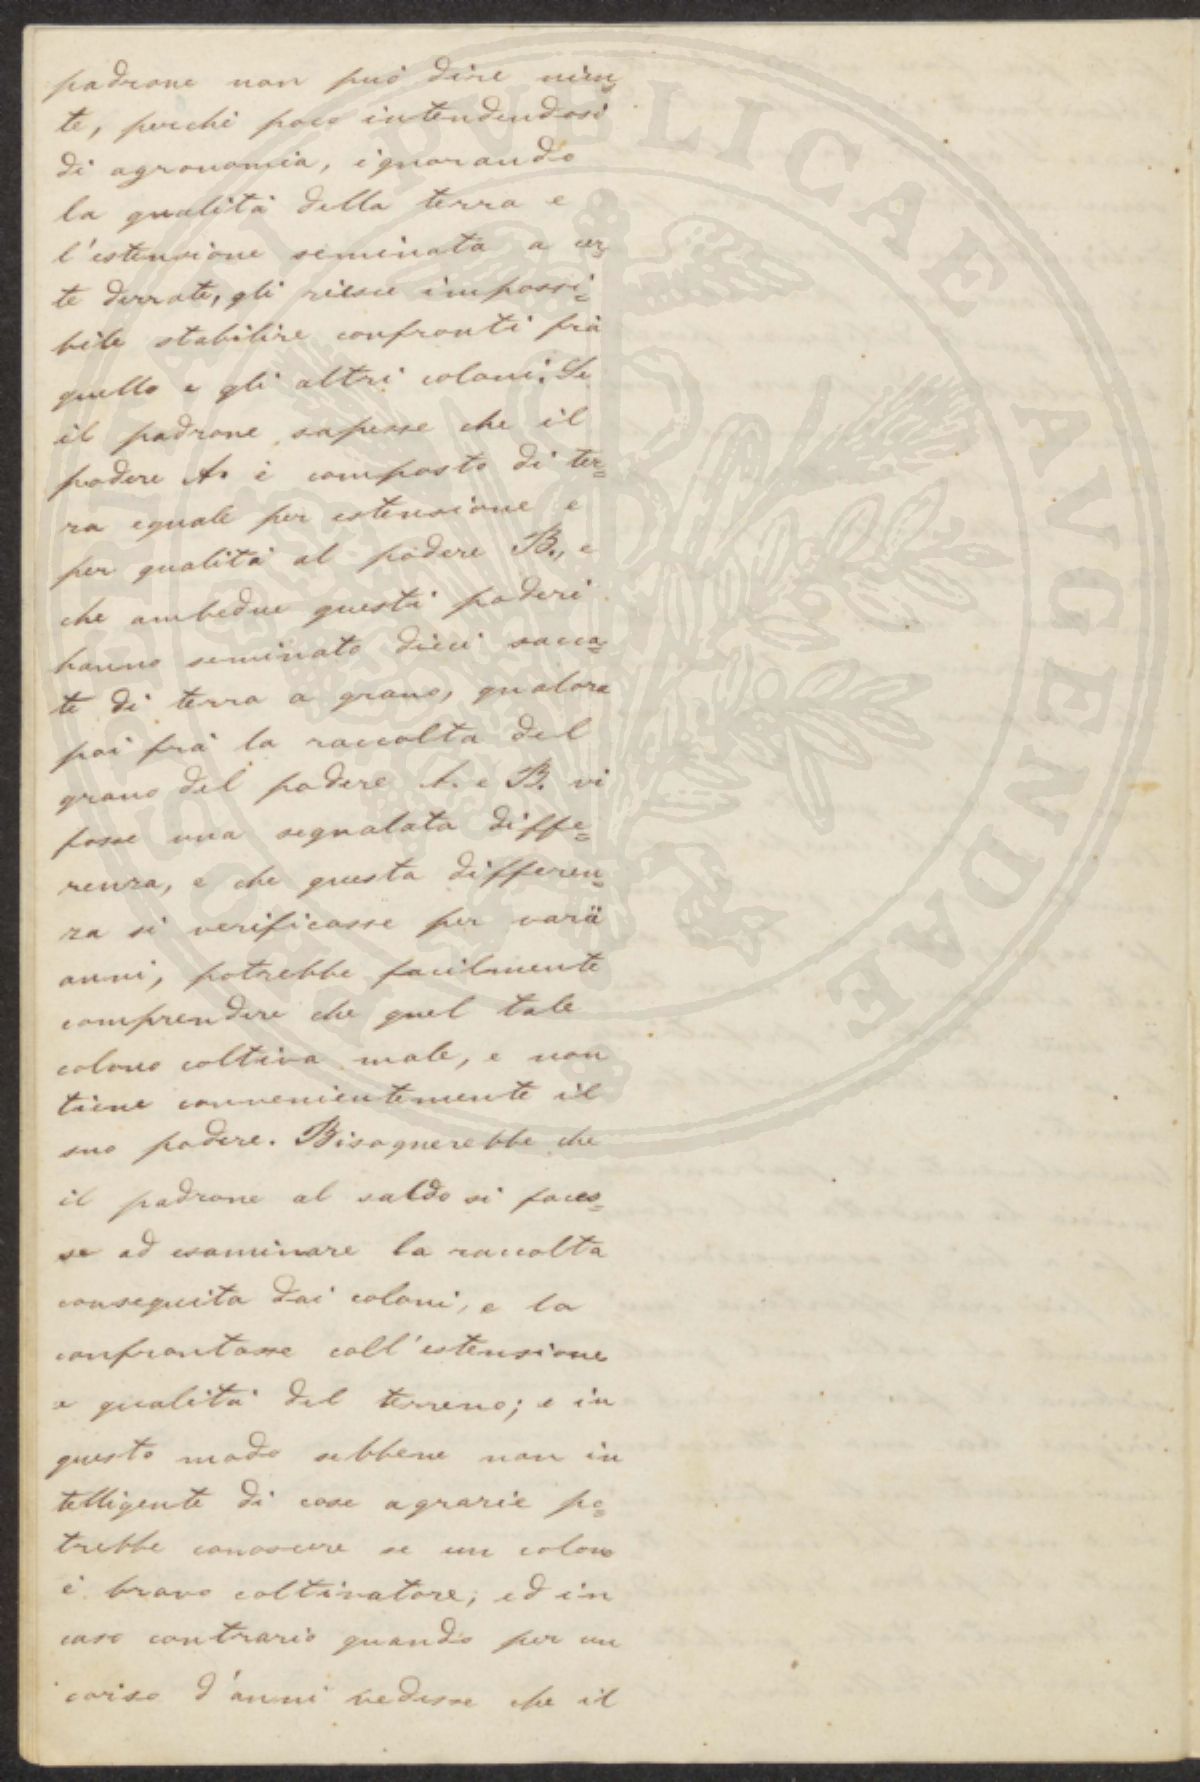 padrone non può dire nien=
te, perché poco intendendosi
di agronomia, ignorando
la qualità della terra e
l'estensione seminata a cer=
te derrate, gli riesce impossi=
bile stabilire confronti frà
quello e gli altri coloni. Se
il padrone sapesse che il
podere A. è composto di ter=
ra eguale per estensione e
per qualità al podere B., e
che ambedue questi poderi
hanno seminato dieci sacca=
te di terra a grano, qualora
poi frà la raccolta del
grano del podere A. e B. vi
fosse una segnalata diffe=
renza, e che questa differen=
za si verificasse per varii
anni, potrebbe facilmente
comprendere che quel tale
colono coltiva male, e non
tiene convenientemente il
suo podere. Bisognerebbe che
il padrone al saldo si faces=
se ad esaminare la raccolta
conseguita dai coloni, e la
confrontasse coll'estensione
e qualità del terreno; e in
questo modo sebbene non in
telligente di cose agrarie po=
trebbe conoscere se un colono
è bravo coltivatore; ed in
caso contrario quando per un
corso d'anni vedesse che il
PUBLICAE AVGENDAE